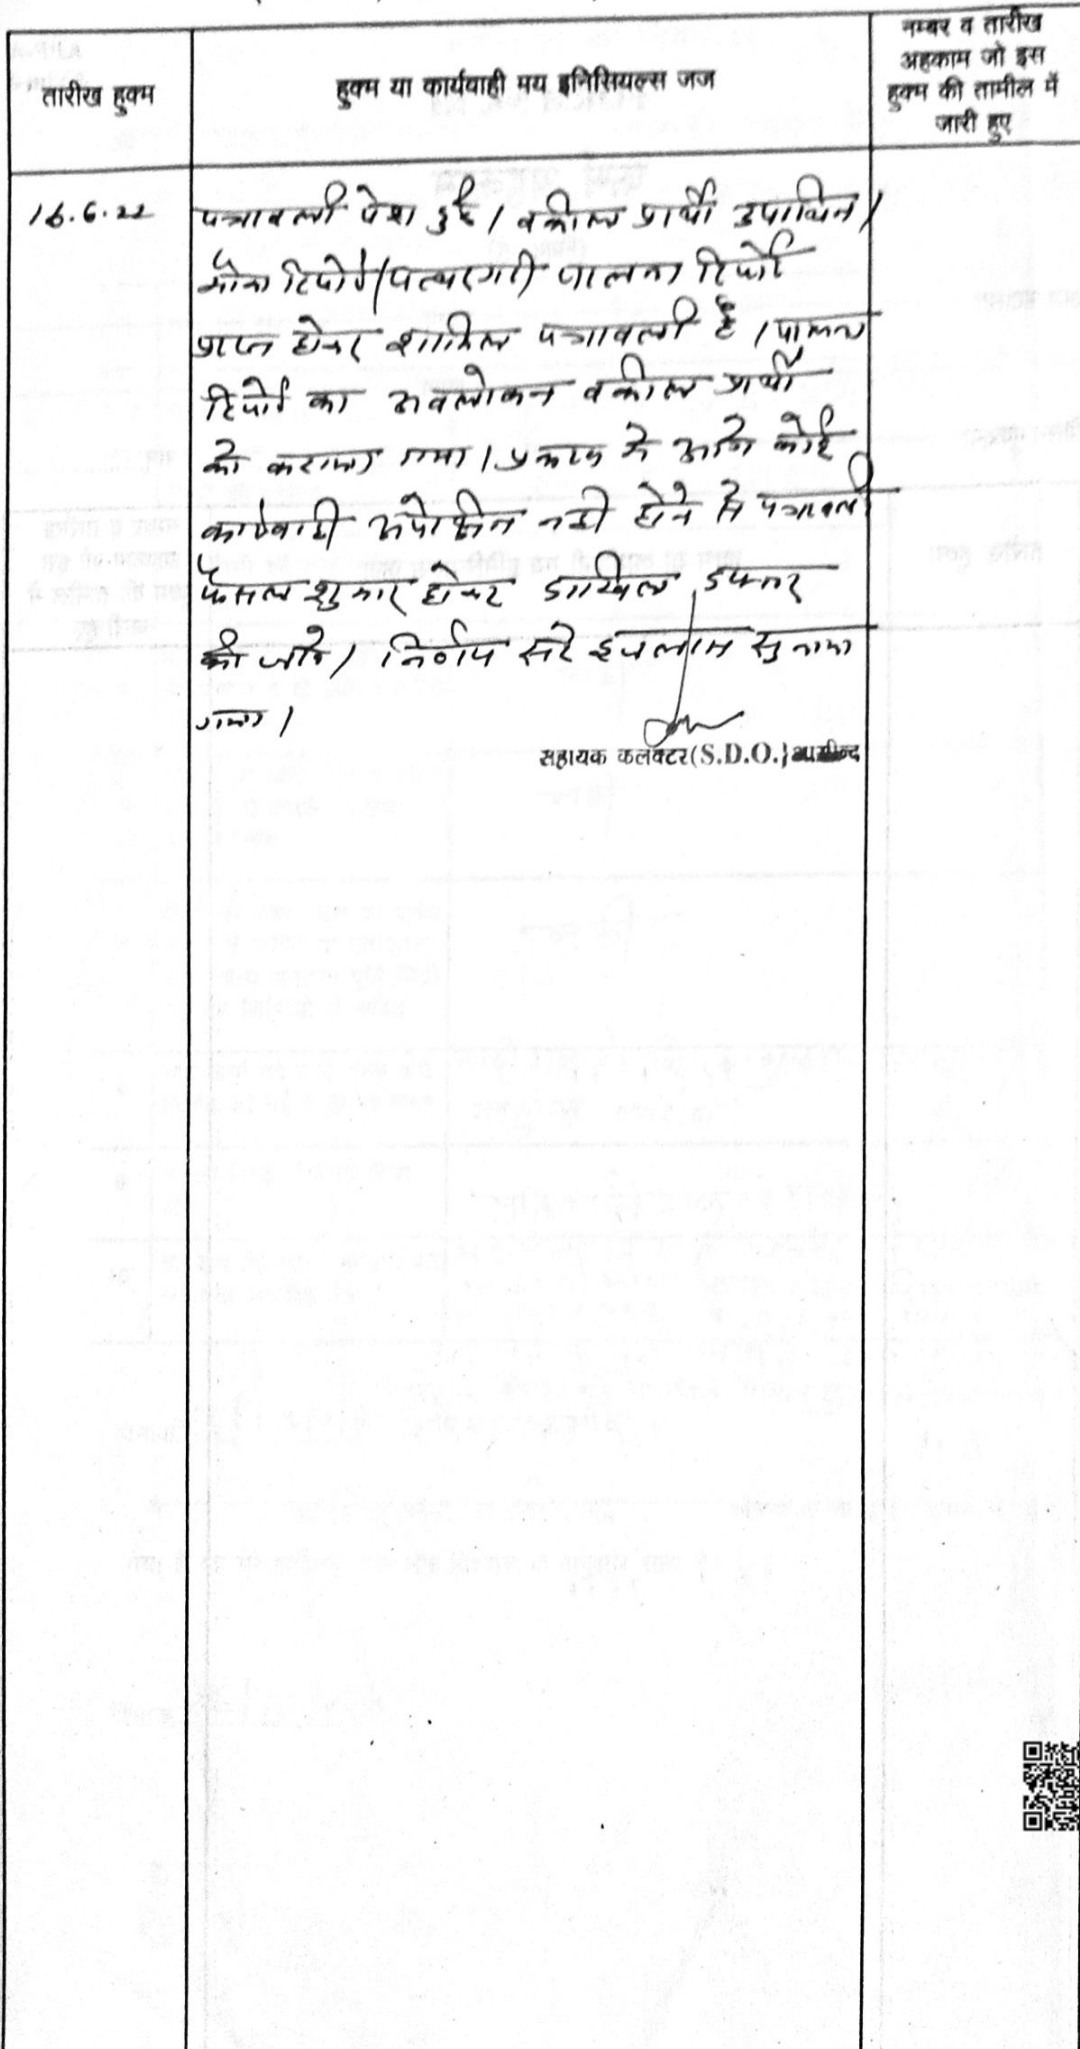 तारीख हुक्म
हुक्म या कार्यवाही मय इनिसियल्स जज
नम्बर व तारीख
अहकाम जो इस
हुक्म की तामील में
जारी हुए
16.6.22
पत्रावली पेश हुई। वकील प्रार्थी उपस्थित।
मौका रिपोर्ट/पत्थरगढी पालना रिपोर्ट
प्राप्त होकर शामिल पत्रावली है। पालना
रिपोर्ट का अवलोकन वकील प्रार्थी
को कराया गया। प्रकरण में आगे कोई
कार्यवाही अपेक्षित नही होने से पत्रावली
फैसल शुमार होकर दाखिल दफ्तर
की जावे। निर्णय सरे इजलास सुनाया
गया।
सहायक कलक्टर(S.D.O.)